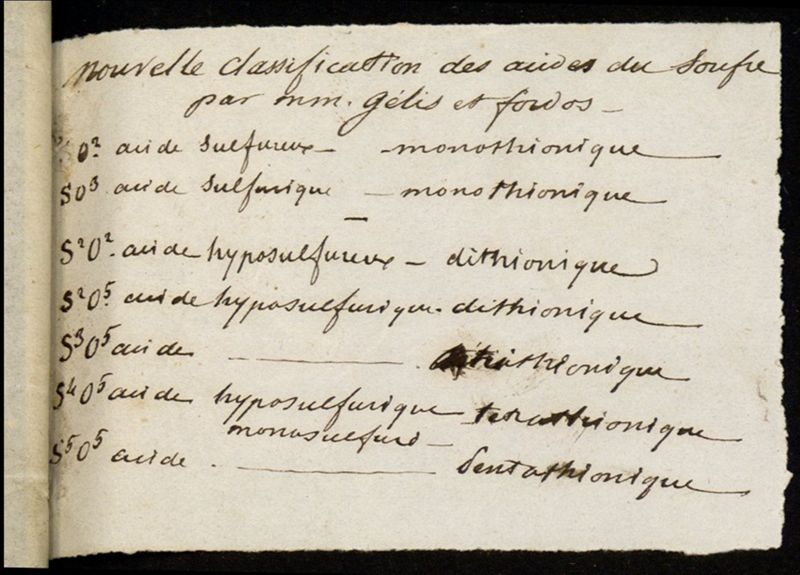 nouvelle classification des acides du Soufre
par mm. Gélis et fordos -
S O² acide sulfureux - - monothionique
SO³ acide sulfurique - monothionique
S²O². acide hyposulfureux - dithionique
S²O⁵. acide hyposulfurique. dithionique
S³O⁵ acide ———— trithionique
S⁴O⁵ acide hyposulfurique tetrathionique
monosulfuré -
S⁵O⁵ acide . ———— pentathionique